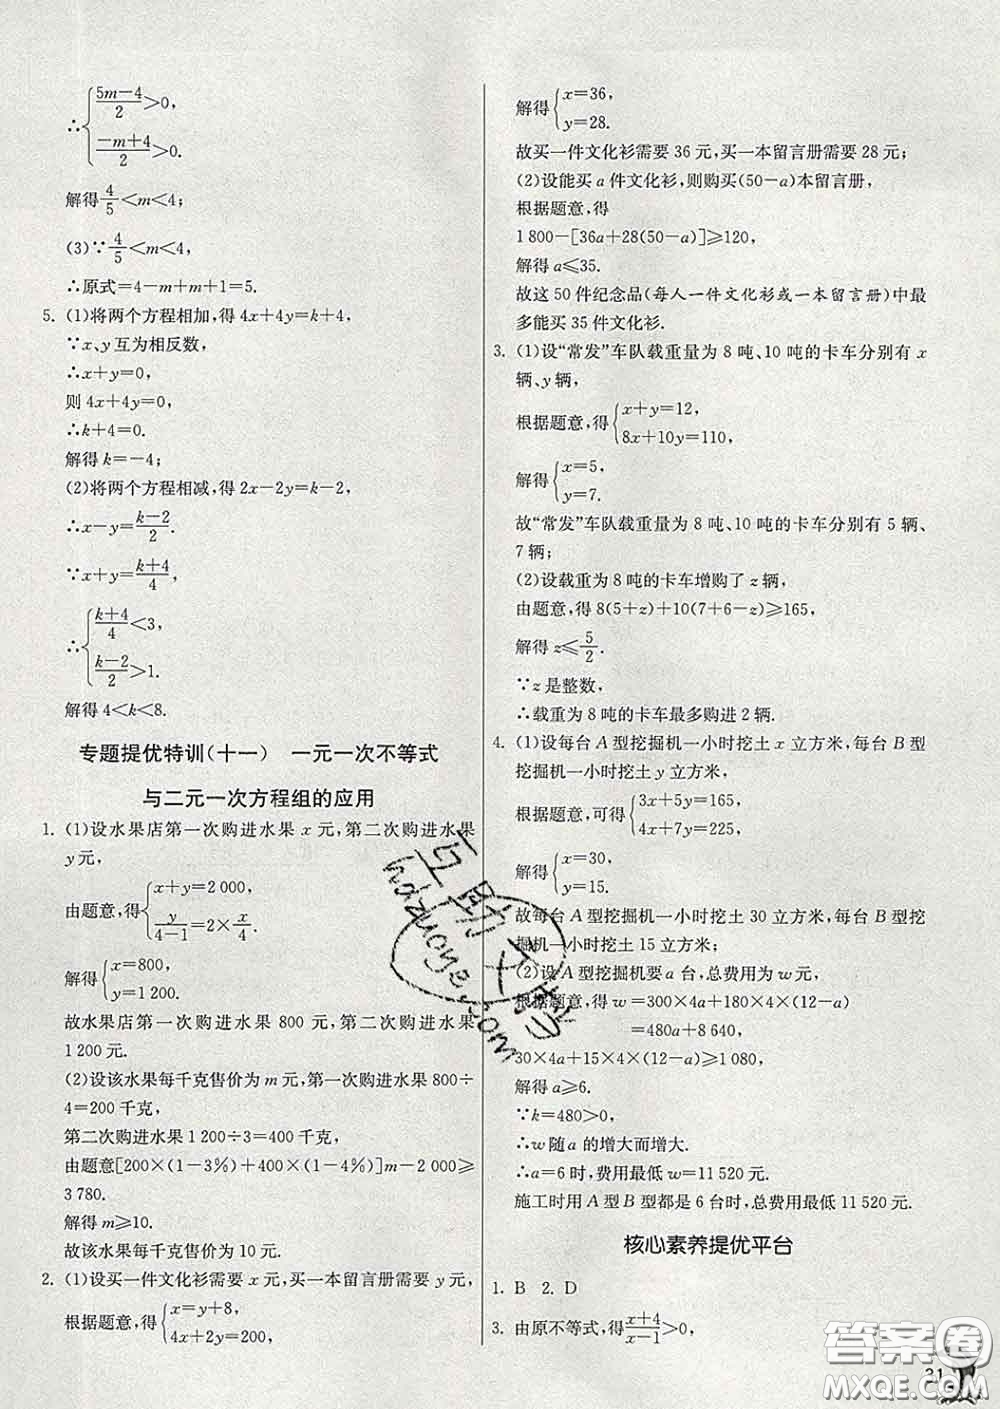 ∴{(5m-4)/2>0,
(-m+4)/2>0.
解得4/5<m<4;
(3)∵4/5<m<4,
∴原式=4-m+m+1=5.
5. (1)将两个方程相加,得4x+4y=k+4,
∵x、y互为相反数,
∴x+y=0,
则4x+4y=0.
∴k+4=0.
解得k=-4;
(2)将两个方程相减,得2x-2y=k-2,
∴x-y=(k-2)/2.
∵x+y=(k+4)/4,
∴{(k+4)/4<3,
(k-2)/2>1.
解得4<k<8.
专题提优特训(十一) 一元一次不等式
与二元一次方程组的应用
1. (1)设水果店第一次购进水果x元,第二次购进水果
y元,
由题意,得{x+y=2 000,
y/(4-1)=2×x/4.
解得{x=800,
y=1 200.
故水果店第一次购进水果800元,第二次购进水果
1 200元.
(2)设该水果每千克售价为m元,第一次购进水果800÷
4=200千克,
第二次购进水果1 200÷3=400千克,
由题意[200×(1-3%)+400×(1-4%)]m-2 000≥
3 780.
解得m≥10.
故该水果每千克售价为10元.
2. (1)设买一件文化衫需要x元,买一本留言册需要y元,
根据题意,得{x=y+8,
4x+2y=200,
解得{x=36,
y=28.
故买一件文化衫需要36元,买一本留言册需要28元;
(2)设能买a件文化衫,则购买(50-a)本留言册,
根据题意,得
1 800-[36a+28(50-a)]≥120,
解得a≤35.
故这50件纪念品(每人一件文化衫或一本留言册)中最
多能买35件文化衫.
3. (1)设“常发”车队载重量为8吨、10吨的卡车分别有x
辆、y辆,
根据题意,得{x+y=12,
8x+10y=110,
解得{x=5,
y=7.
故“常发”车队载重量为8吨、10吨的卡车分别有5辆、
7辆;
(2)设载重为8吨的卡车增购了z辆,
由题意,得8(5+z)+10(7+6-z)≥165,
解得z≤5/2.
∵z是整数,
∴载重为8吨的卡车最多购进2辆.
4. (1)设每台A型挖掘机一小时挖土x立方米,每台B型
挖掘机一小时挖土y立方米,
根据题意,可得{3x+5y=165,
4x+7y=225,
解得{x=30,
y=15.
故每台A型挖掘机一小时挖土30立方米,每台B型挖
掘机一小时挖土15立方米;
(2)设A型挖掘机要a台,总费用为w元,
根据题意,得w=300×4a+180×4×(12-a)
=480a+8 640,
30×4a+15×4×(12-a)≥1 080,
解得a≥6.
∵k=480>0,
∴w随a的增大而增大.
∴a=6时,费用最低w=11 520元.
施工时用A型B型都是6台时,总费用最低11 520元.
核心素养提优平台
1. B 2. D
3. 由原不等式,得(x+4)/(x-1)>0,
21
答案圈
MXQE.COM
hdzuoye.com